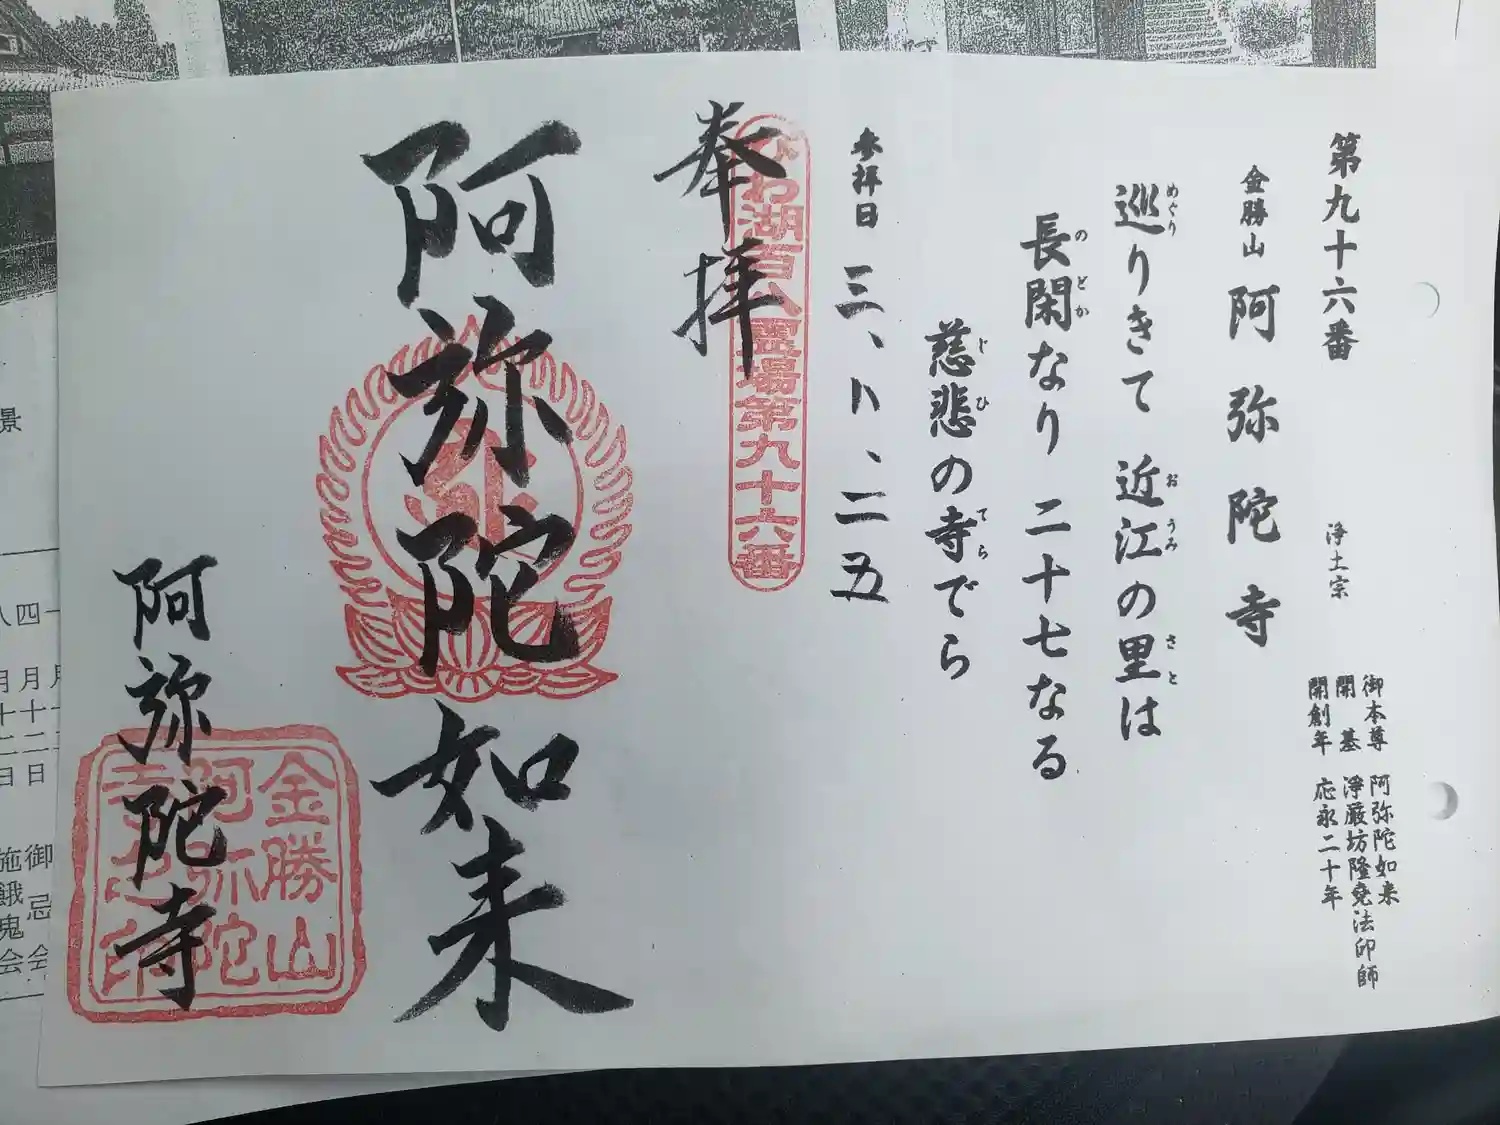 第九十六番
金勝山 阿弥陀寺
浄土宗
御本尊 阿弥陀如来
開基 浄厳坊隆堯法印師
開創年 応永二十年
巡りきて 近江の里は
めぐり おうみ さと
長閑なり 二十七なる
のどか
慈悲の寺でら
じひ てら
参拝日 三、八、二五
奉拝
びわ湖百八霊場第九十六番
阿弥陀如来
阿弥陀寺
金勝山
阿弥陀
寺之印
景
四一
月月
十十
二二
日日
御忌会
施餓鬼会